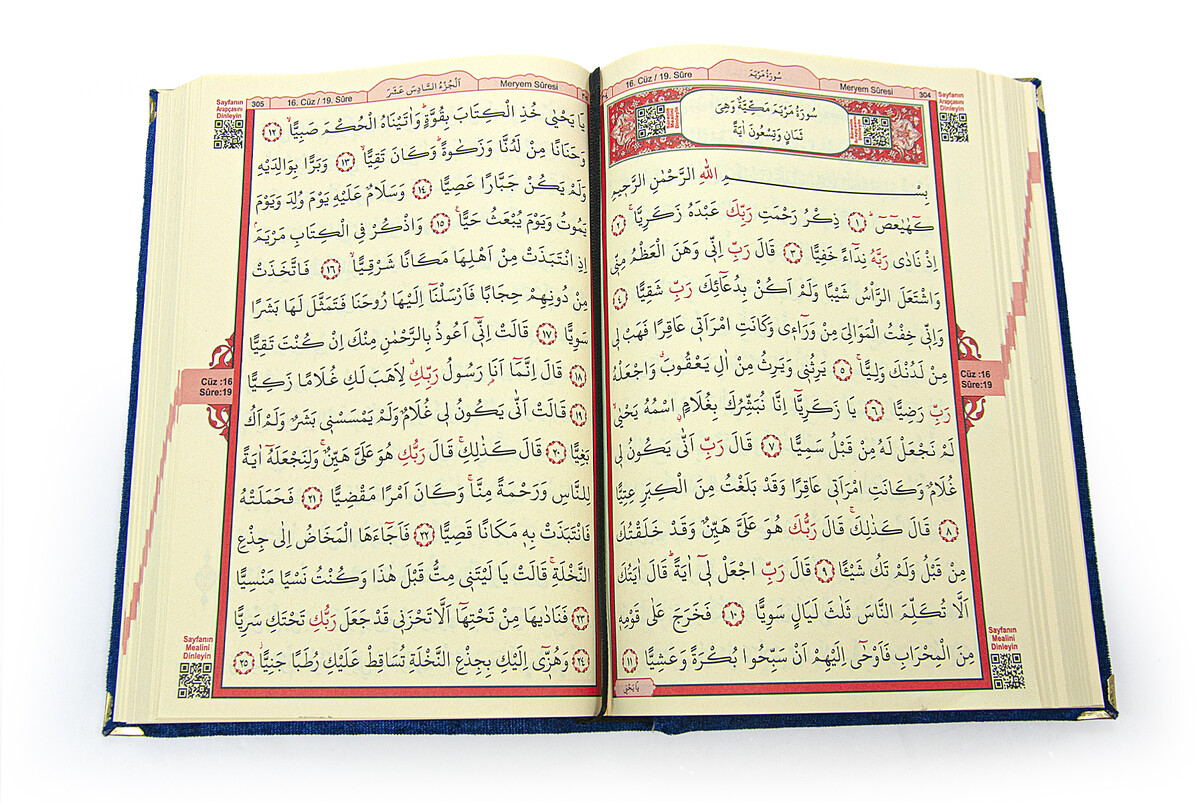 16. Cüz / 19. Sûre
سُورَةُ مَرْيَمَ
Meryem Sûresi
304
Sayfanın
Arapçasını
Dinleyin
سُورَةُ مَرْيَمَ مَكِّيَّةٌ وَهِيَ
ثَمَانٍ وَتِسْعُونَ اٰيَةً
بِسْمِ اللهِ الرَّحْمٰنِ الرَّحِيمِ
كٓهٰيٰعٓصٓ ۚ ﴿١﴾ ذِكْرُ رَحْمَتِ رَبِّكَ عَبْدَهُ زَكَرِيَّاۚ ﴿٢﴾
اِذْ نَادٰى رَبَّهُ نِدَٓاءً خَفِيًّا ﴿٣﴾ قَالَ رَبِّ اِنّٖي وَهَنَ الْعَظْمُ مِنّٖي
وَاشْتَعَلَ الرَّأْسُ شَيْبًا وَلَمْ اَكُنْ بِدُعَٓائِكَ رَبِّ شَقِيًّا ﴿٤﴾
وَاِنّٖي خِفْتُ الْمَوَالِيَ مِنْ وَرَٓاءٖي وَكَانَتِ امْرَاَتٖي عَاقِرًا فَهَبْ لٖي
مِنْ لَدُنْكَ وَلِيًّاۙ ﴿٥﴾ يَرِثُنٖي وَيَرِثُ مِنْ اٰلِ يَعْقُوبَۗ وَاجْعَلْهُ
رَبِّ رَضِيًّا ﴿٦﴾ يَا زَكَرِيَّٓا اِنَّا نُبَشِّرُكَ بِغُلَامٍۨ اسْمُهُ يَحْيٰىۙ
لَمْ نَجْعَلْ لَهُ مِنْ قَبْلُ سَمِيًّا ﴿٧﴾ قَالَ رَبِّ اَنّٰى يَكُونُ لٖي
غُلَامٌ وَكَانَتِ امْرَاَتٖي عَاقِرًا وَقَدْ بَلَغْتُ مِنَ الْكِبَرِ عِتِيًّا
﴿٨﴾ قَالَ كَذٰلِكَۚ قَالَ رَبُّكَ هُوَ عَلَيَّ هَيِّنٌ وَقَدْ خَلَقْتُكَ
مِنْ قَبْلُ وَلَمْ تَكُ شَيْـًٔا ﴿٩﴾ قَالَ رَبِّ اجْعَلْ لٖٓي اٰيَةًۜ قَالَ اٰيَتُكَ
اَلَّا تُكَلِّمَ النَّاسَ ثَلٰثَ لَيَالٍ سَوِيًّا ﴿١٠﴾ فَخَرَجَ عَلٰى قَوْمِهٖ
مِنَ الْمِحْرَابِ فَاَوْحٰٓى اِلَيْهِمْ اَنْ سَبِّحُوا بُكْرَةً وَعَشِيًّا ﴿١١﴾
يَا يَحْيٰى
Cüz :16
Sûre:19
Sayfanın
Mealini
Dinleyin
305
16. Cüz / 19. Sûre
اَلْجُزْءُ السَّادِسُ عَشَرَ
Meryem Sûresi
Sayfanın
Arapçasını
Dinleyin
يَا يَحْيٰى خُذِ الْكِتَابَ بِقُوَّةٍۜ وَاٰتَيْنَاهُ الْحُكْمَ صَبِيًّاۙ ﴿١٢﴾
وَحَنَانًا مِنْ لَدُنَّا وَزَكٰوةًۜ وَكَانَ تَقِيًّاۙ ﴿١٣﴾ وَبَرًّا بِوَالِدَيْهِ
وَلَمْ يَكُنْ جَبَّارًا عَصِيًّا ﴿١٤﴾ وَسَلَامٌ عَلَيْهِ يَوْمَ وُلِدَ وَيَوْمَ
يَمُوتُ وَيَوْمَ يُبْعَثُ حَيًّا۟ ﴿١٥﴾ وَاذْكُرْ فِي الْكِتَابِ مَرْيَمَۢ
اِذِ انْتَبَذَتْ مِنْ اَهْلِهَا مَكَانًا شَرْقِيًّاۙ ﴿١٦﴾ فَاتَّخَذَتْ
مِنْ دُونِهِمْ حِجَابًا فَاَرْسَلْنَٓا اِلَيْهَا رُوحَنَا فَتَمَثَّلَ لَهَا بَشَرًا
سَوِيًّا ﴿١٧﴾ قَالَتْ اِنّٖٓي اَعُوذُ بِالرَّحْمٰنِ مِنْكَ اِنْ كُنْتَ تَقِيًّا
﴿١٨﴾ قَالَ اِنَّمَٓا اَنَا۬ رَسُولُ رَبِّكِۗ لِاَهَبَ لَكِ غُلَامًا زَكِيًّا
﴿١٩﴾ قَالَتْ اَنّٰى يَكُونُ لٖي غُلَامٌ وَلَمْ يَمْسَسْنٖي بَشَرٌ وَلَمْ اَكُ
بَغِيًّا ﴿٢٠﴾ قَالَ كَذٰلِكِۚ قَالَ رَبُّكِ هُوَ عَلَيَّ هَيِّنٌۚ وَلِنَجْعَلَهُٓ اٰيَةً
لِلنَّاسِ وَرَحْمَةً مِنَّاۚ وَكَانَ اَمْرًا مَقْضِيًّا ﴿٢١﴾ فَحَمَلَتْهُ
فَانْتَبَذَتْ بِهٖ مَكَانًا قَصِيًّا ﴿٢٢﴾ فَاَجَٓاءَهَا الْمَخَاضُ اِلٰى جِذْعِ
النَّخْلَةِۚ قَالَتْ يَا لَيْتَنٖي مِتُّ قَبْلَ هٰذَا وَكُنْتُ نَسْيًا مَنْسِيًّا
﴿٢٣﴾ فَنَادٰيهَا مِنْ تَحْتِهَٓا اَلَّا تَحْزَنٖي قَدْ جَعَلَ رَبُّكِ تَحْتَكِ سَرِيًّا
﴿٢٤﴾ وَهُزّٖٓي اِلَيْكِ بِجِذْعِ النَّخْلَةِ تُسَاقِطْ عَلَيْكِ رُطَبًا جَنِيًّاۘ ﴿٢٥﴾
Cüz :16
Sûre:19
Sayfanın
Mealini
Dinleyin